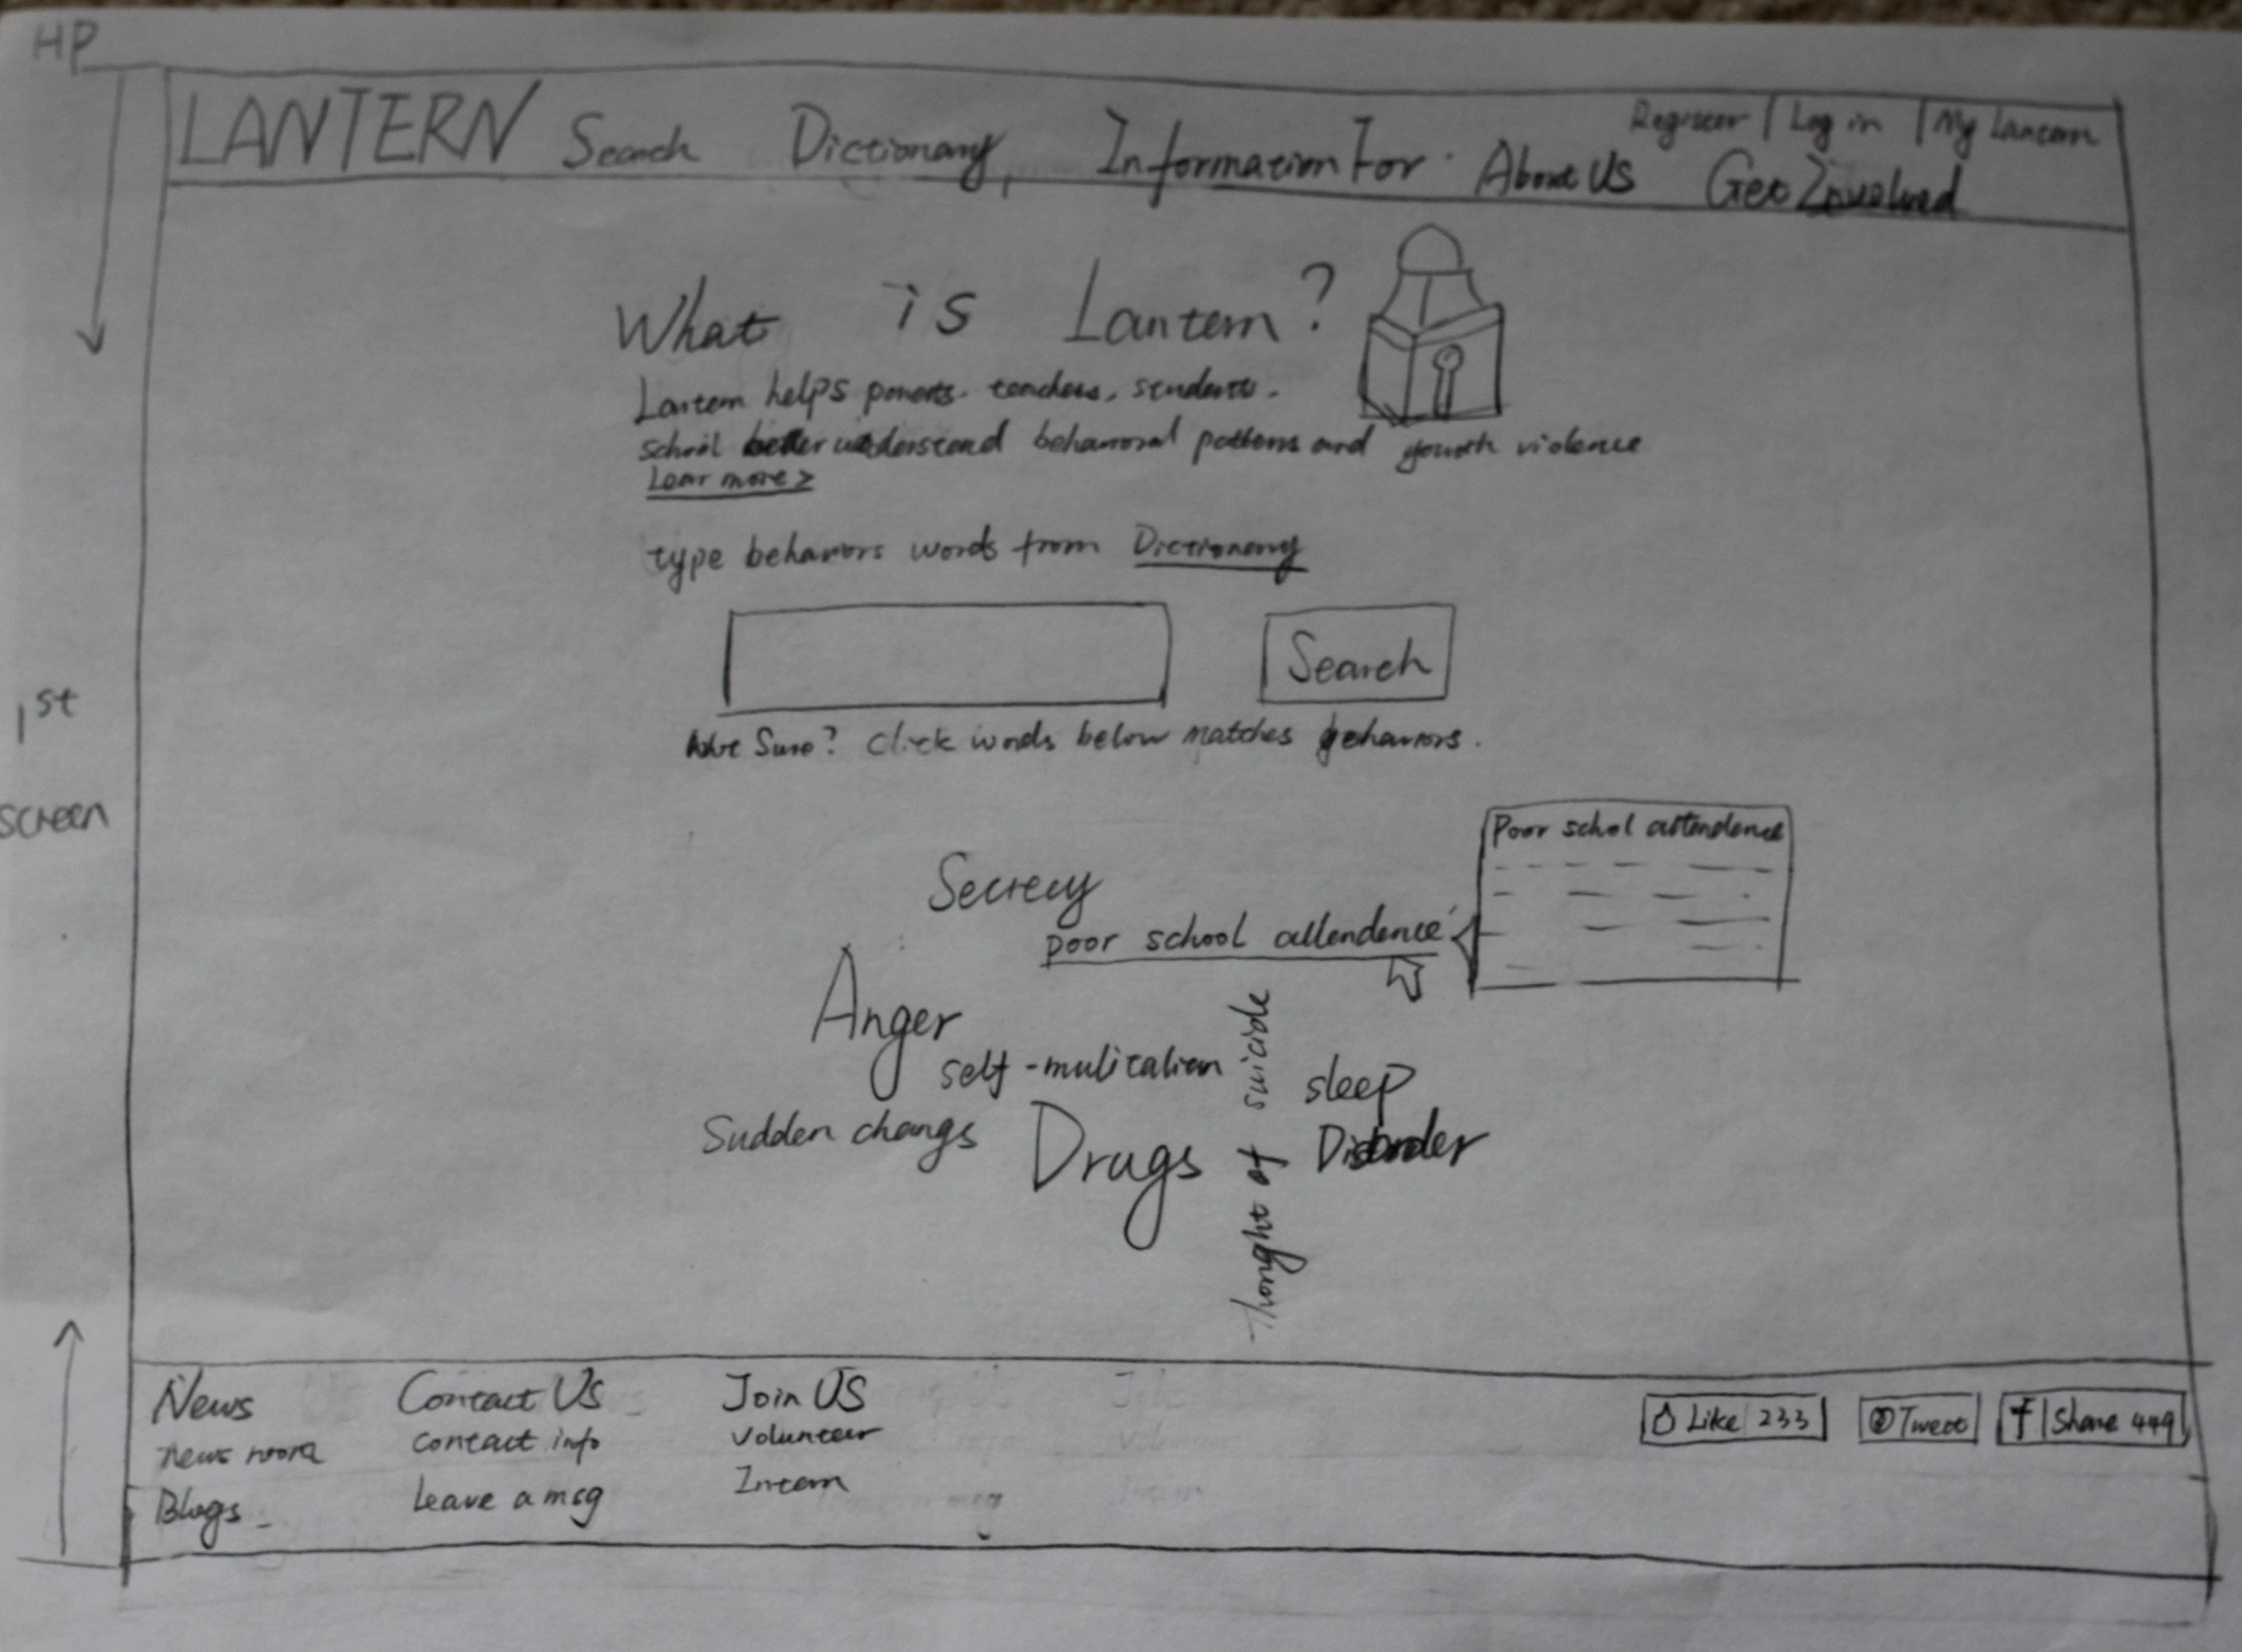 HP
Register | Log in | My Lantern
LANTERN Search Dictionary, Information For About US Get Involved
What is Lantern?
Lantern helps parents. teachers. students.
school better understand behavioral patterns and youth violence
Lear more >
type behaviors words from Dictionary
Search
Not Sure? Click words below matches behaviors.
1st
screen
Poor schol attendence
Secrecy
poor school attendence
Anger
self-mulitation
Thought of suicide
sleep
Disorder
Sudden changs
Drugs
News
news room
Blogs
Contact US
contact info
Leave a msg
Join US
Volunteer
Intern
Like 233
Tweet
f Share 449